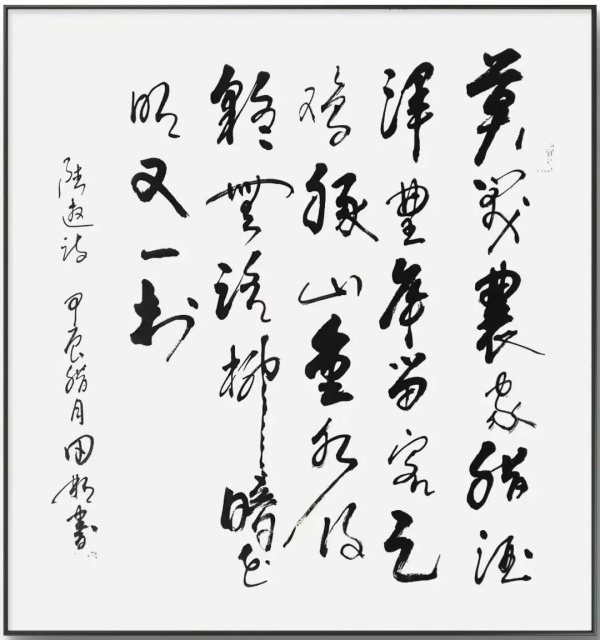 莫笑農家腊酒
渾豐年留客足
鸡豚山重水復
疑無路柳暗花
明又一村
陸遊詩 甲辰腊月田書